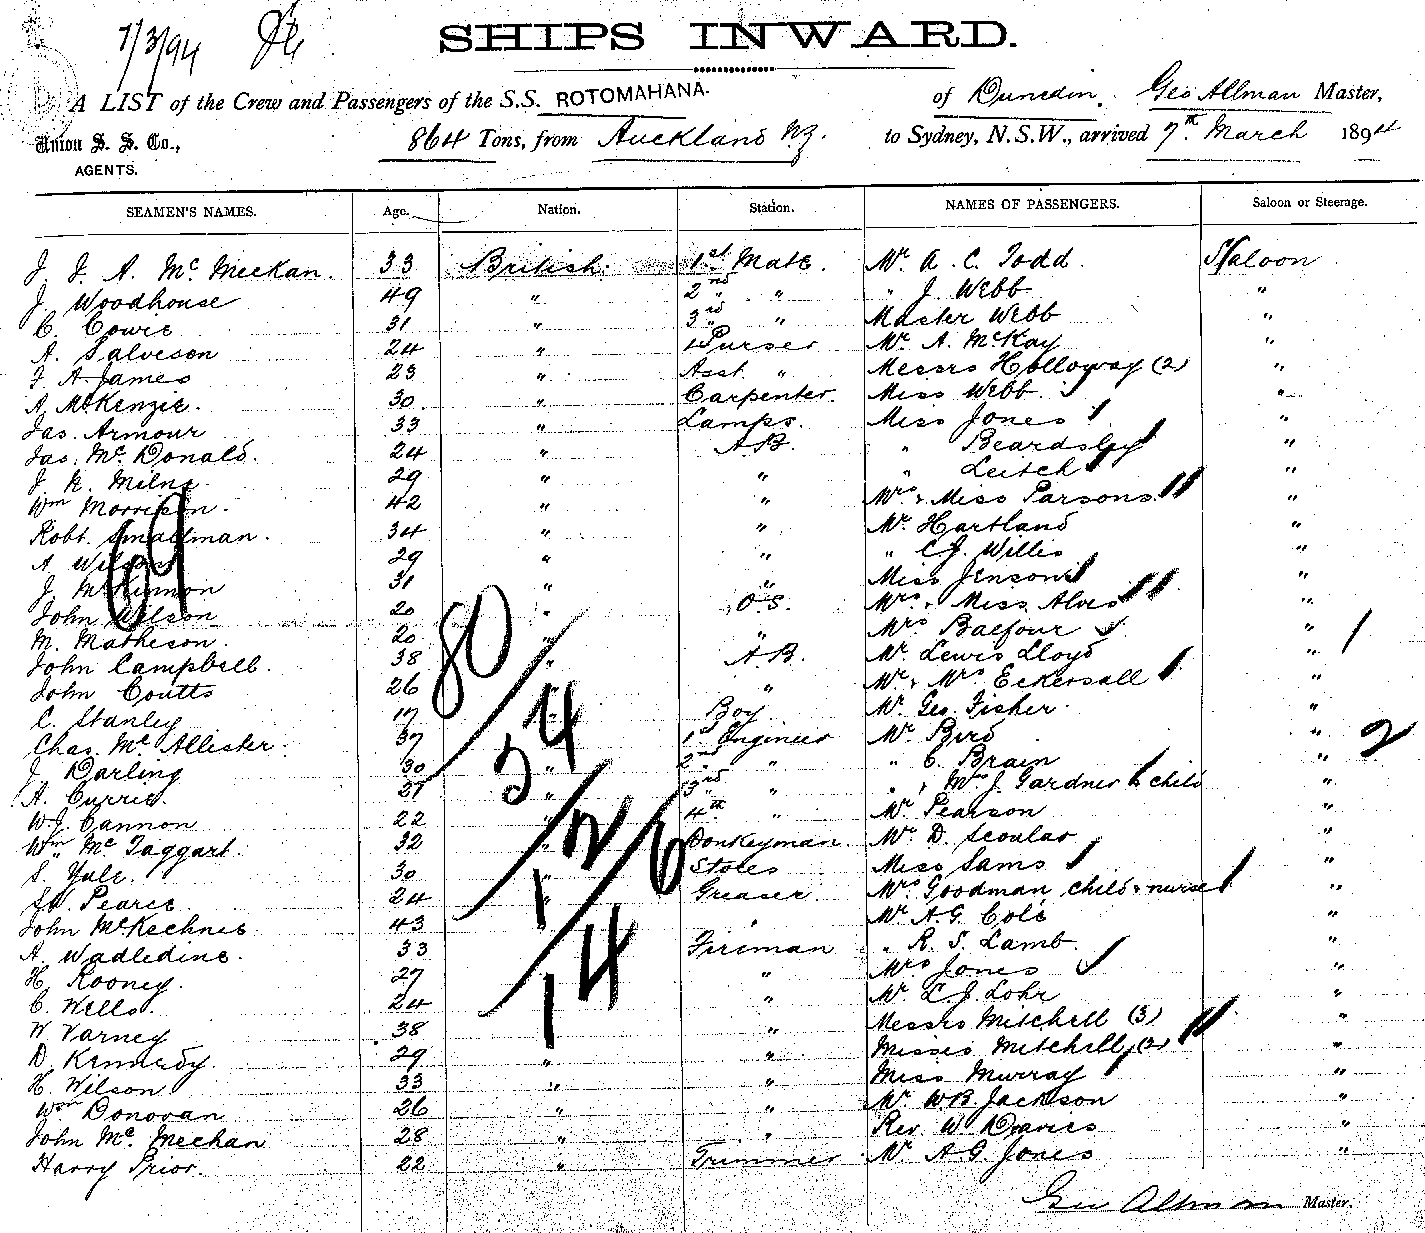 7/3/94
SHIPS INWARD.
A LIST of the Crew and Passengers of the S.S. ROTOMAHANA. of Dunedin, Geo Allman Master,
Union S. S. Co., AGENTS. 864 Tons, from Auckland N.Z. to Sydney, N.S.W., arrived 7th March 1894
SEAMEN'S NAMES. Age. Nation. Station. NAMES OF PASSENGERS. Saloon or Steerage.
J. J. A. Mc Meekan. 33 British. 1st Mate. Mr A. C. Todd Saloon
J. Woodhouse 49 " 2nd " " J Webb "
C. Cowie 31 " 3rd " Master Webb "
A. Salveson 24 " Purser Mr A. McKay "
J A James 23 " Asst " Messrs Holloway (2) "
A. McKenzie. 30. " Carpenter. Miss Webb "
Jas. Armour 33 " Lamps. Miss Jones "
Jas. Mc Donald. 24 " A.B. " Beardsley "
J R. Milne 29 " " " Leitch "
Wm Morrison. 42 " " Mrs & Miss Parsons "
Robt. Smallman. 34 " " Mr Hartland "
A Wilson 29 " " " C J. Willis "
J. McKinnon 31 " " Miss Jenson "
John Wilson 20 " O.S. Mrs & Miss Alves "
M. Matheson. 20 " " Mrs Balfour "
John Campbell. 38 " A.B. Mr Lewis Lloyd "
John Coutts 26 " " Mr & Mrs Eckersall "
C. Stanley 17 " Boy Mr Geo. Fisher "
Chas. Mc Allister. 37 " 1st Engineer Mr Bird "
J. Darling 30 " 2nd " " C. Brain "
A. Currie. 27 " 3rd " " & Mrs J. Gardner & child "
W J Cannon 22 " 4th " Mr Pearson "
Wm Mc Taggart. 32 " Donkeyman Mr D. Scoular "
S. Yule. 30 " Stores Miss Sams "
Pearce 24 " Greaser Mrs Goodman child & nurse "
John McKechnie 43 " Mr A G Cole "
A. Wadledine. 33 Fireman " R. S. Lamb. "
H. Rooney. 27 " Mrs Jones "
C. Wells. 24 " Mr L J. Lohr "
W Varney 38 " Messrs Mitchell (3) "
D. Kennedy. 29 " " Misses Mitchell (2) "
H Wilson 33 " " Miss Murray "
Wm Donovan 26 " " Mr W B Jackson "
John Mc. Meehan 28 " " Rev. W Davies "
Harry Prior. 22 " Trimmer Mr A G. Jones "
69
80
24
12
6
14
1
2
Geo Allman Master.